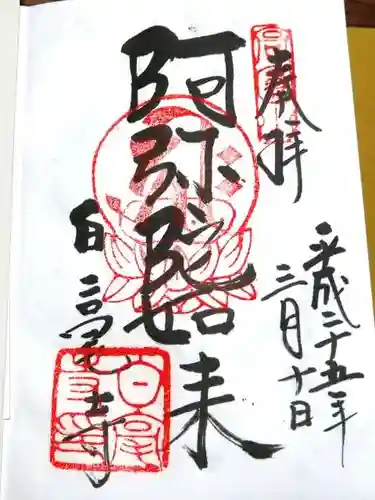 奉拝
平成二十五年
三月十日
阿弥陀如来
白毫寺